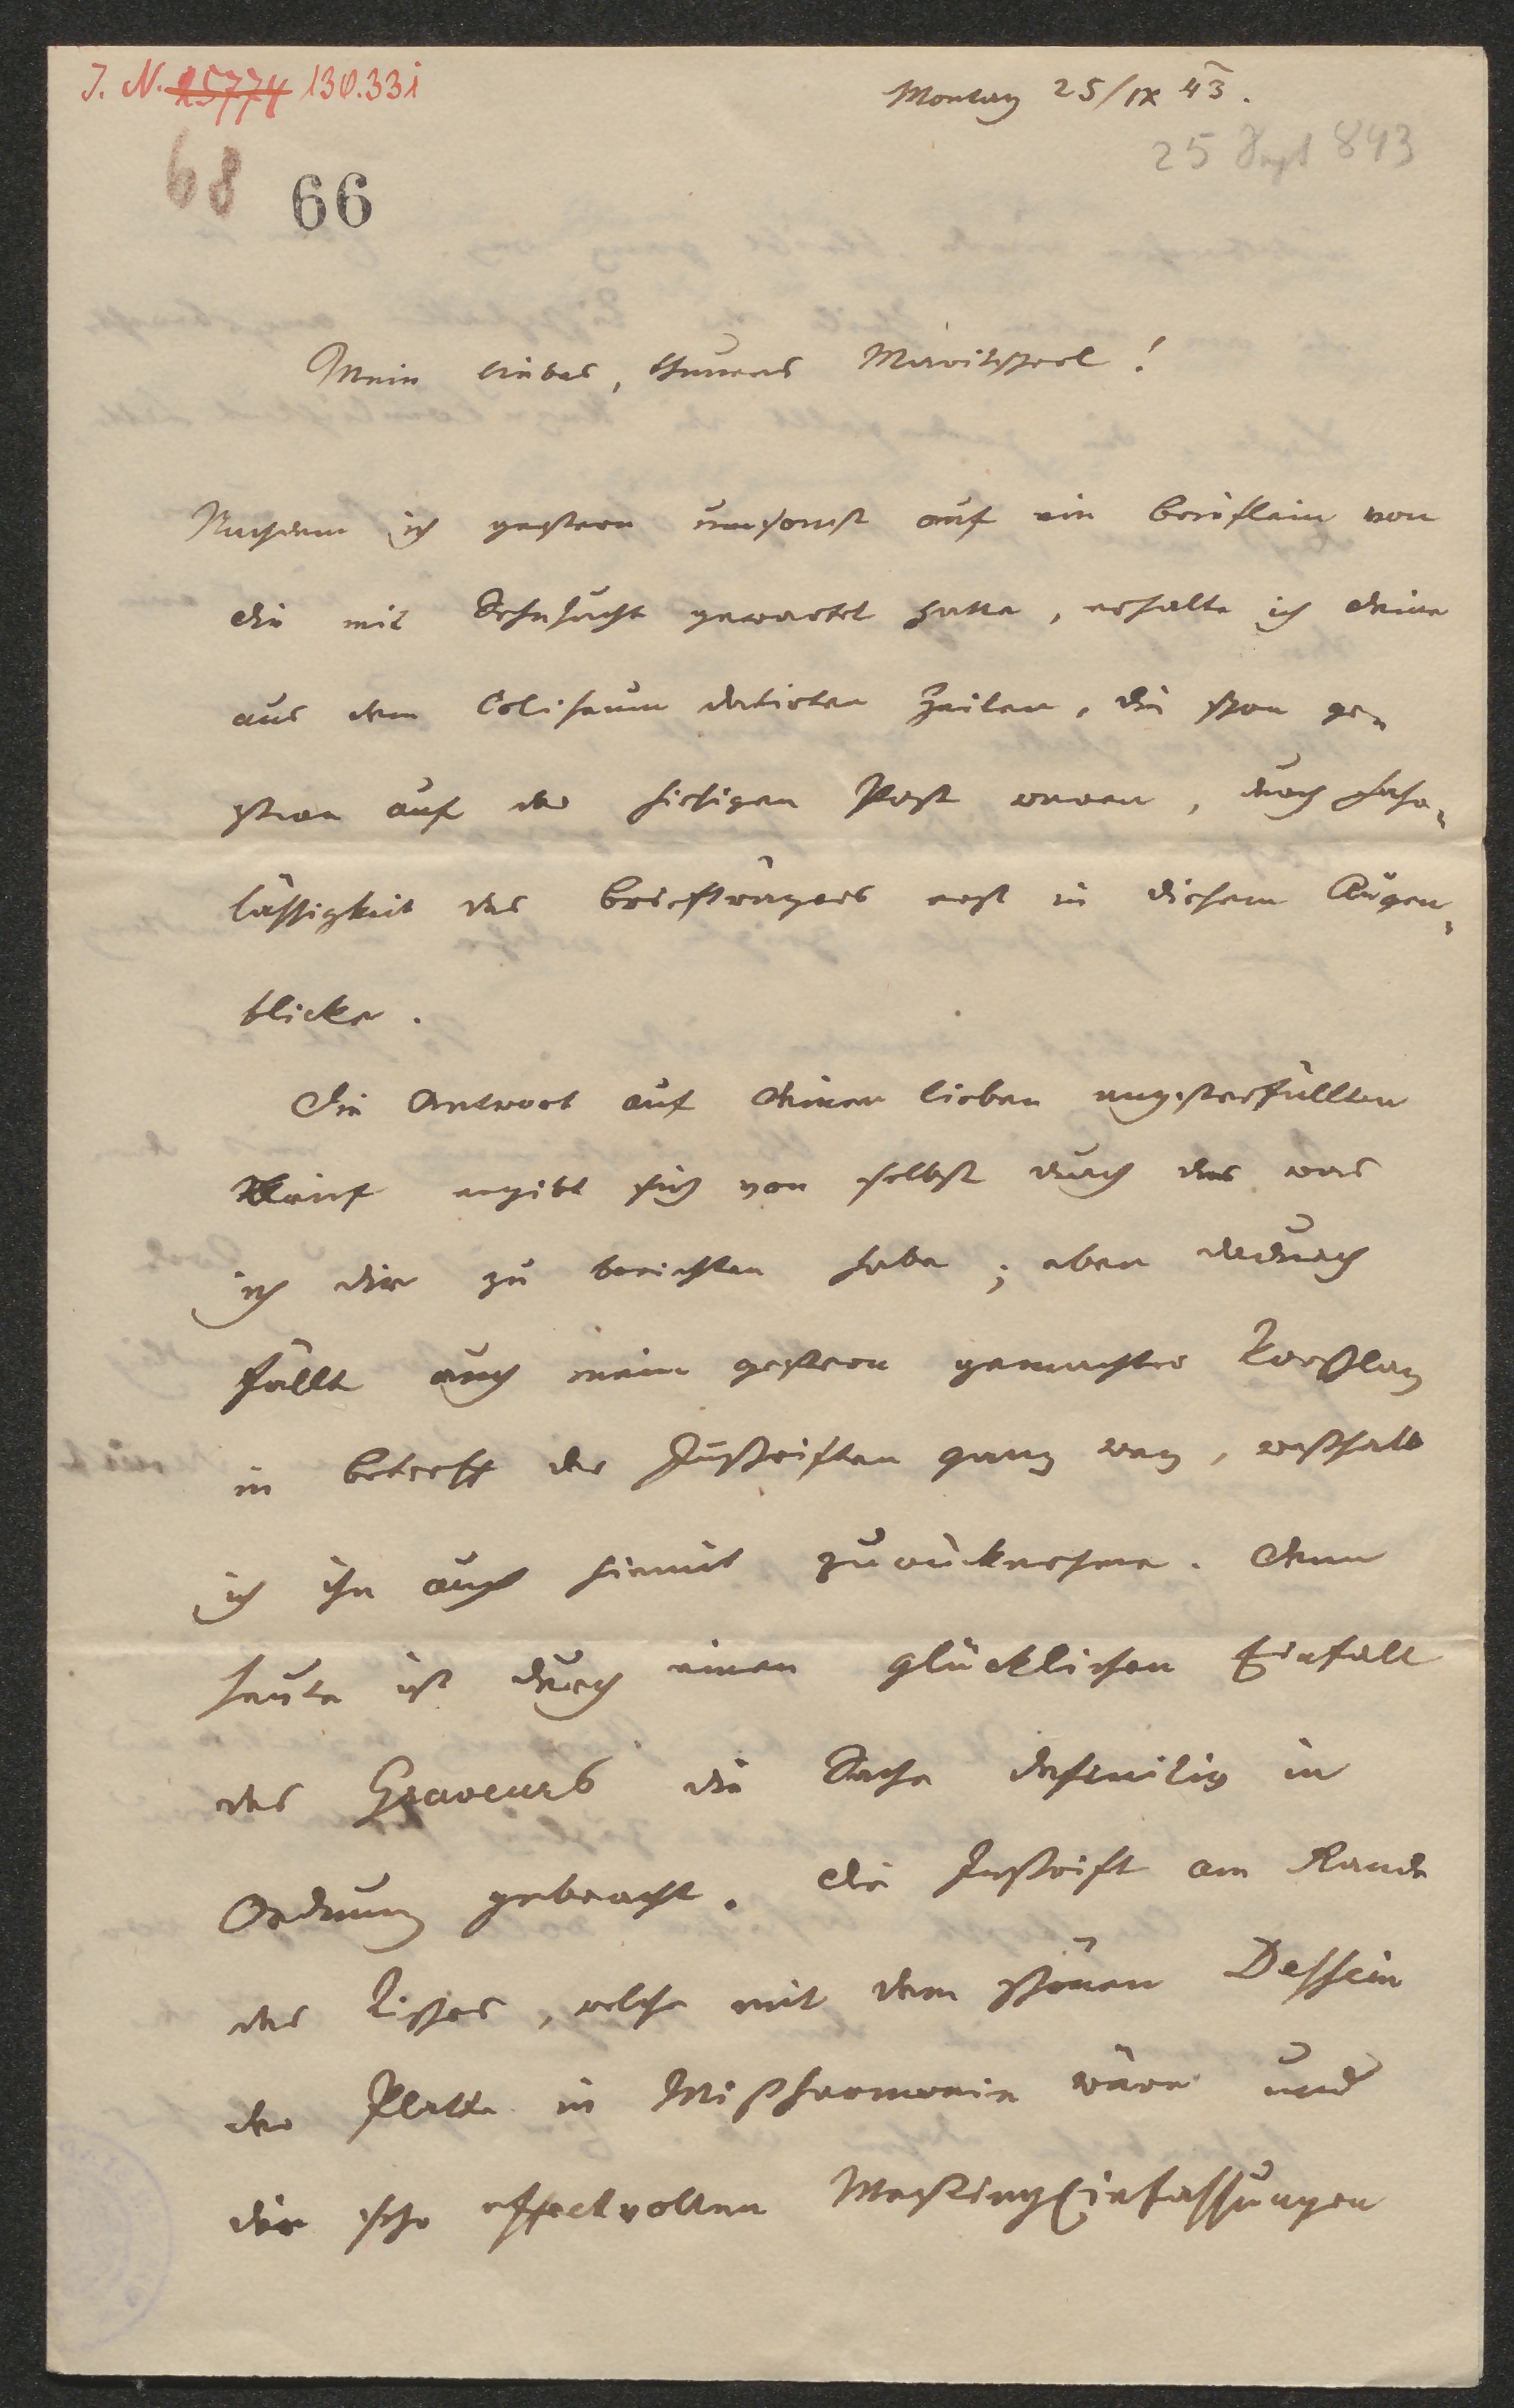 J. N. 25774 130.331
Montag 25/IX 43.
25 Sept 843
68 66
Mein liebes, theures
Nachdem ich gestern umsonst auf ein Brieflein von
dir mit Sehnsucht gewartet hatte, erhalte ich deine
aus dem Coliseum datirten Zeilen, die schon ge-
stern auf der hiesigen Post waren, durch Fahr-
lässigkeit des Briefträgers erst in diesem Augen-
blicke.
Die Antwort auf deinen lieben angsterfüllten
Brief ergibt sich von selbst durch das was
ich dir zu berichten habe; eben dadurch
fällt auch mein gestern gemachter Vorschlag
in Betreff der Inschriften ganz weg, weßhalb
ich ihn auch hiemit zurücknehme. Denn
heute ist durch einen glücklichen Einfall
des Graveurs die Sache definitiv in
Ordnung gebracht. Die Inschrift am Rande
des Tisches, welche mit dem schönen Dessein
der Platte in Mißharmonie wäre und
die sehr effectvollen Messing Einfassungen